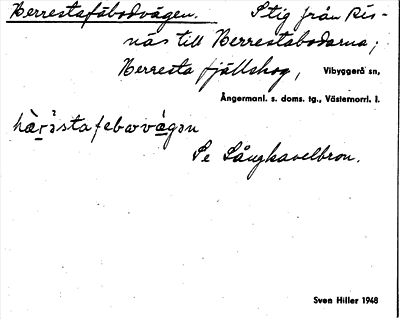 Berrestafäbodvägen. Stig från Ris-
näs till Berrestabodarna,
Berresta fjällskog, Vibyggerå sn,
Ångermanl. s. doms. tg., Västernorrl. l.
Se Långhavelbron.
Sven Hiller 1948